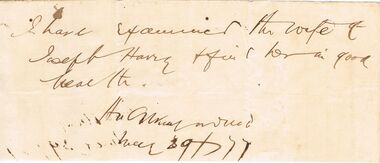 I have examined the wife of
Joseph Harry & find her in good
health.
May 29/77